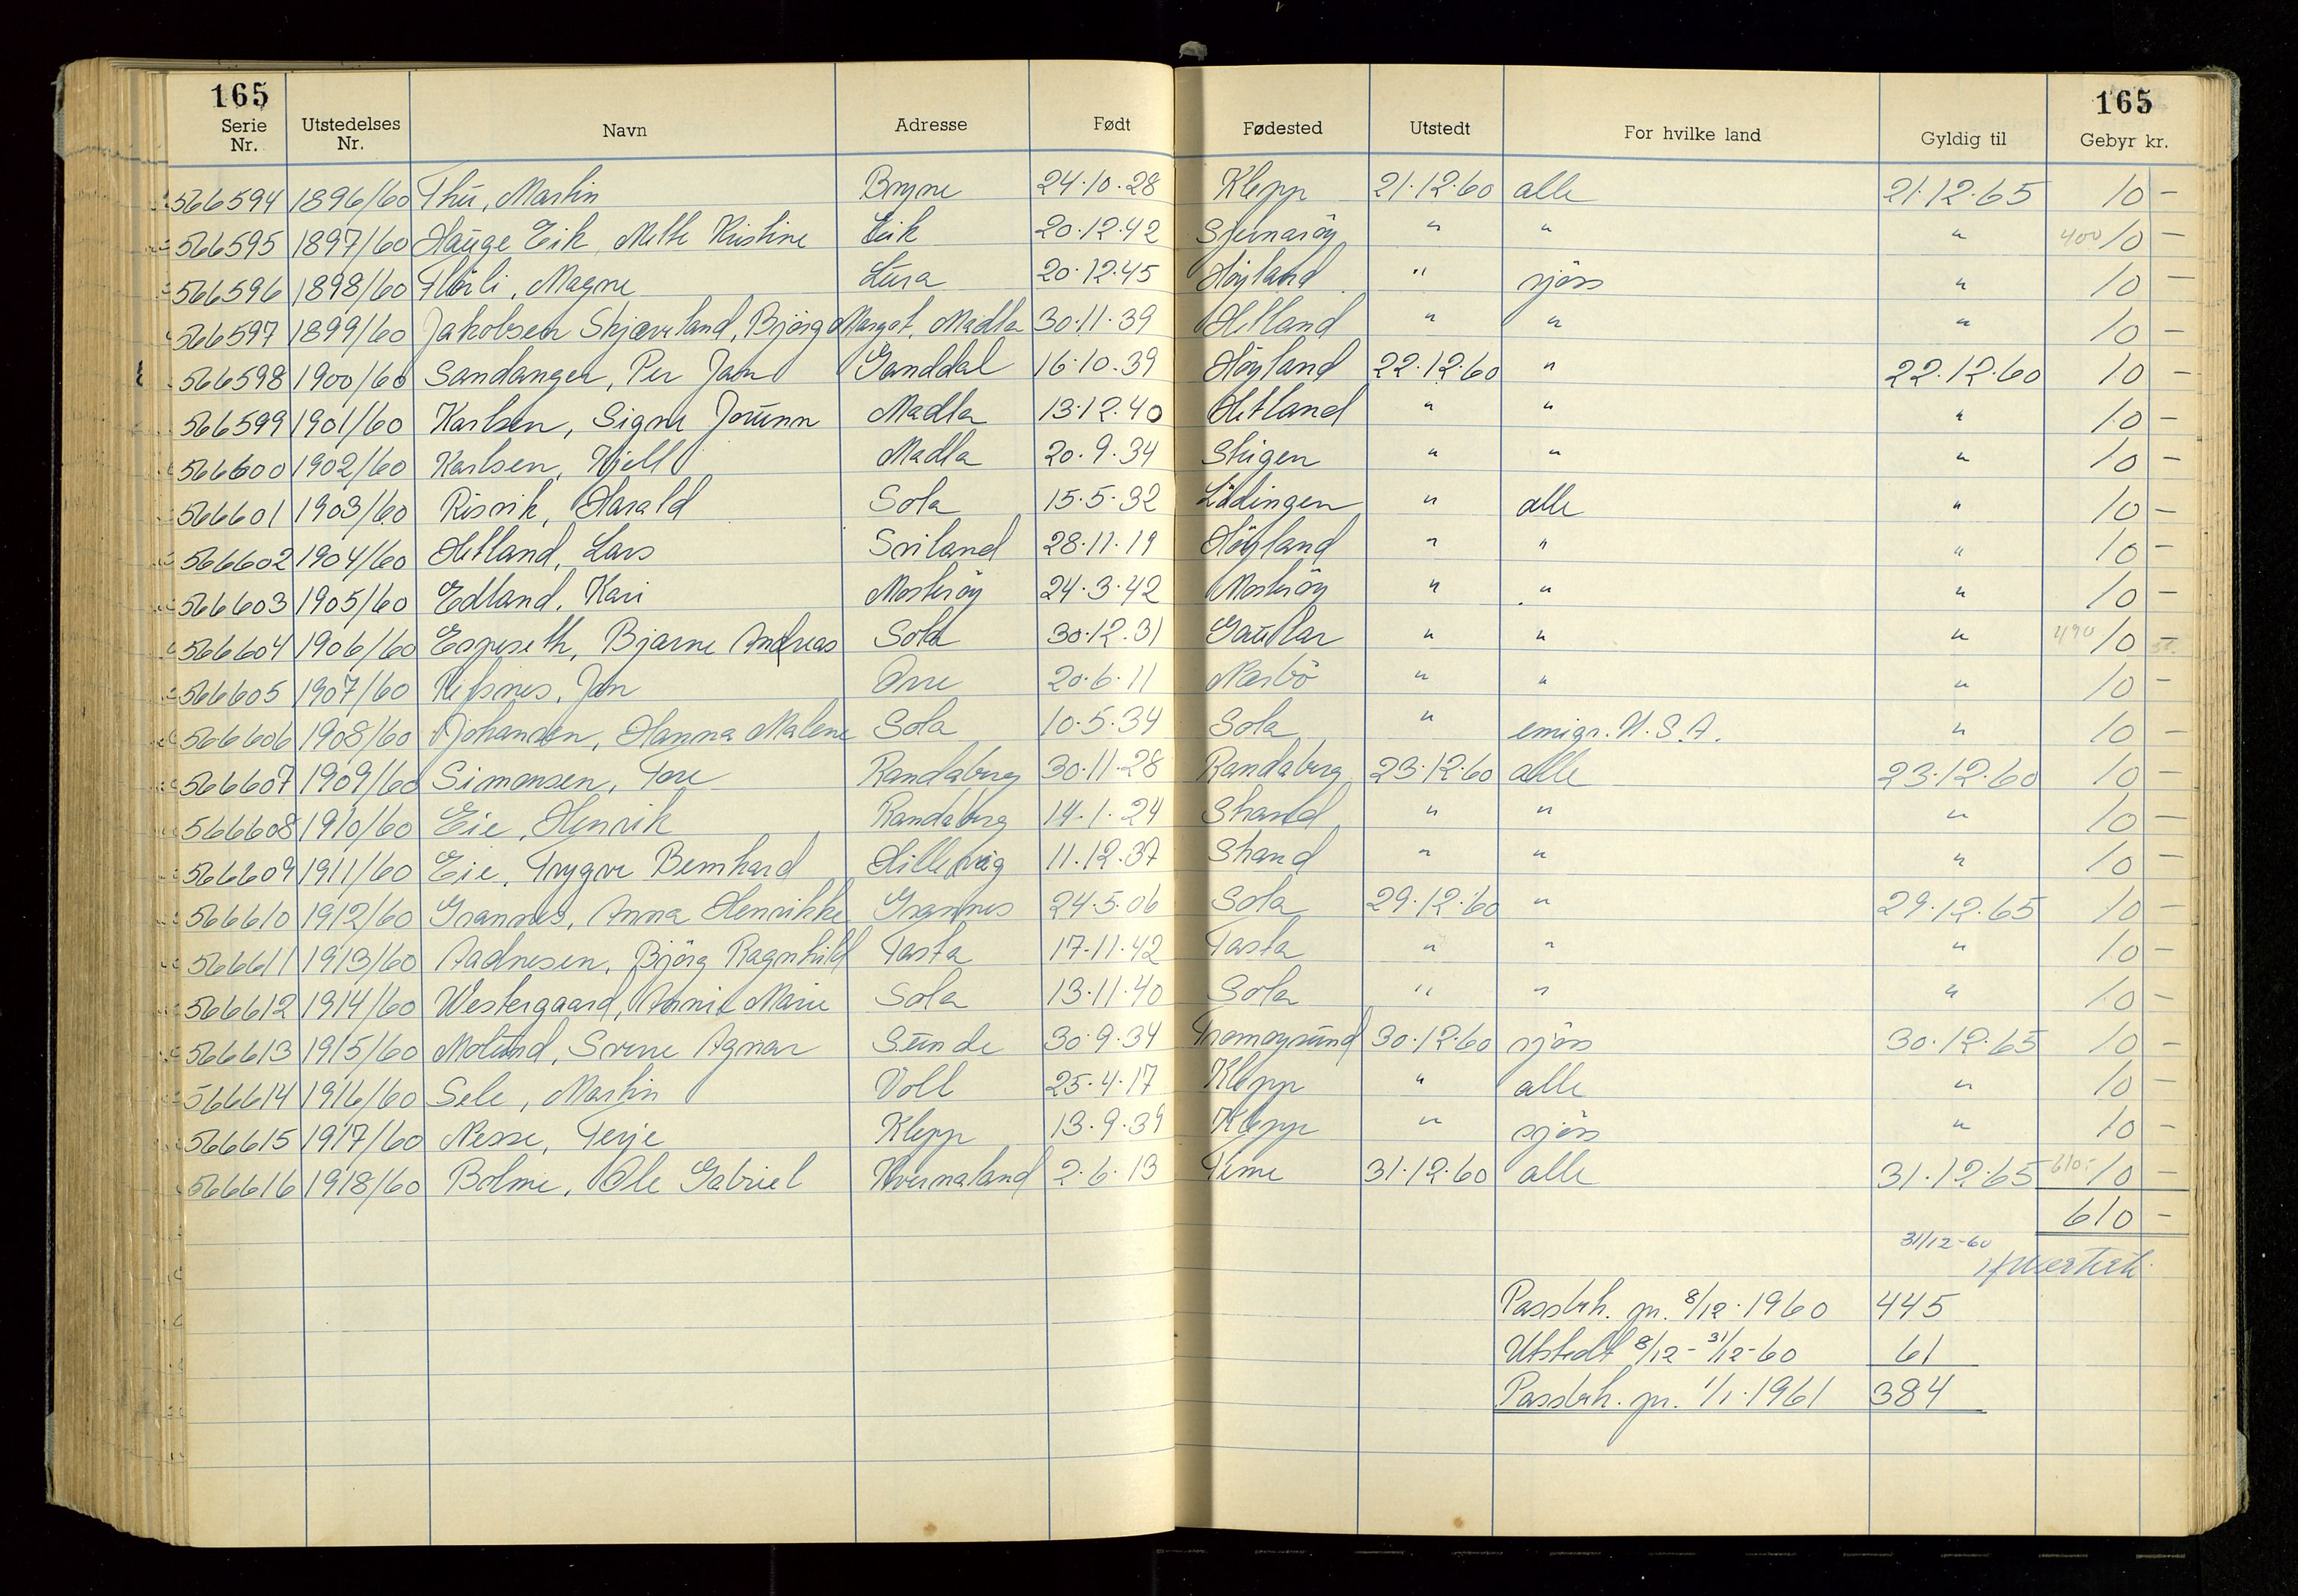 165 165
Serie Nr. Utstedelses Nr. Navn Adresse Født Fødested Utstedt For hvilke land Gyldig til Gebyr kr.
566594 1896/60 Thu, Martin Bryne 24.10.28 Klepp 21.12.60 alle 21.12.65 10 -
566595 1897/60 Hauge Eik, Mette Kristine Eik 20.12.42 Sjernarøy " " " 400 10 -
566596 1898/60 Magne Lura 20.12.45 Höyland " sjöss " 10 -
566597 1899/60 Jakobsen Skjæveland, Björg Margot, Madla 30.11.39 Hetland " " " 10 -
566598 1900/60 Sandanger, Per Jan Ganddal 16.10.39 Höyland 22.12.60 " 22.12.60 10 -
566599 1901/60 Karlsen, Signe Jorunn Madla 13.12.40 Hetland " " " 10 -
566600 1902/60 Karlsen, Kjell Madla 20.9.34 Steigen " " " 10 -
566601 1903/60 Risvik, Harald Sola 15.5.32 Lödingen " alle " 10 -
566602 1904/60 Hetland, Lars Sviland 28.11.19 Höyland " " " 10 -
566603 1905/60 Edland, Kari Mosteröy 24.3.42 Mosteröy " " " 10 -
566604 1906/60 Espeseth, Bjarne Andreas Sola 30.12.31 Gaular " " " 490 10 -
566605 1907/60 Refsnes, Jon Orre 20.6.11 Nærbö " " " 10 -
566606 1908/60 Johansen, Hanna Malene Sola 10.5.34 Sola " emigr. U.S.A. " 10 -
566607 1909/60 Simonsen, Tore Randaberg 30.11.28 Randaberg 23.12.60 alle 23.12.60 10 -
566608 1910/60 Eie, Henrik Randaberg 14.1.24 Strand " " " 10 -
566609 1911/60 Eie, Trygve Bernhard Hillevåg 11.12.37 Strand " " " 10 -
566610 1912/60 Grannes, Anna Henrikke Grannes 24.5.06 Sola 29.12.60 " 29.12.65 10 -
566611 1913/60 Aadnesen, Björg Ragnhild Tasta 17.11.42 Tasta " " " 10 -
566612 1914/60 Westergaard, Annie Marie Sola 13.11.40 Sola " " " 10 -
566613 1915/60 Molund, Sverre Agnar Sunde 30.9.34 Tromøysund 30.12.60 sjöss 30.12.65 10 -
566614 1916/60 Sele, Martin Voll 25.4.17 Klepp " alle " 10 -
566615 1917/60 Nesse, Terje Klepp 13.9.39 Klepp " sjöss " 10 -
566616 1918/60 Bolme, Ole Gabriel Kvernaland 2.6.13 Time 31.12.60 alle 31.12.65 610- 10 -
610 -
31/12-60
Passbeh. pr. 8/12.1960 445
Utstedt 8/12 - 31/12-60 61
Passbeh. pr. 1/1.1961 384